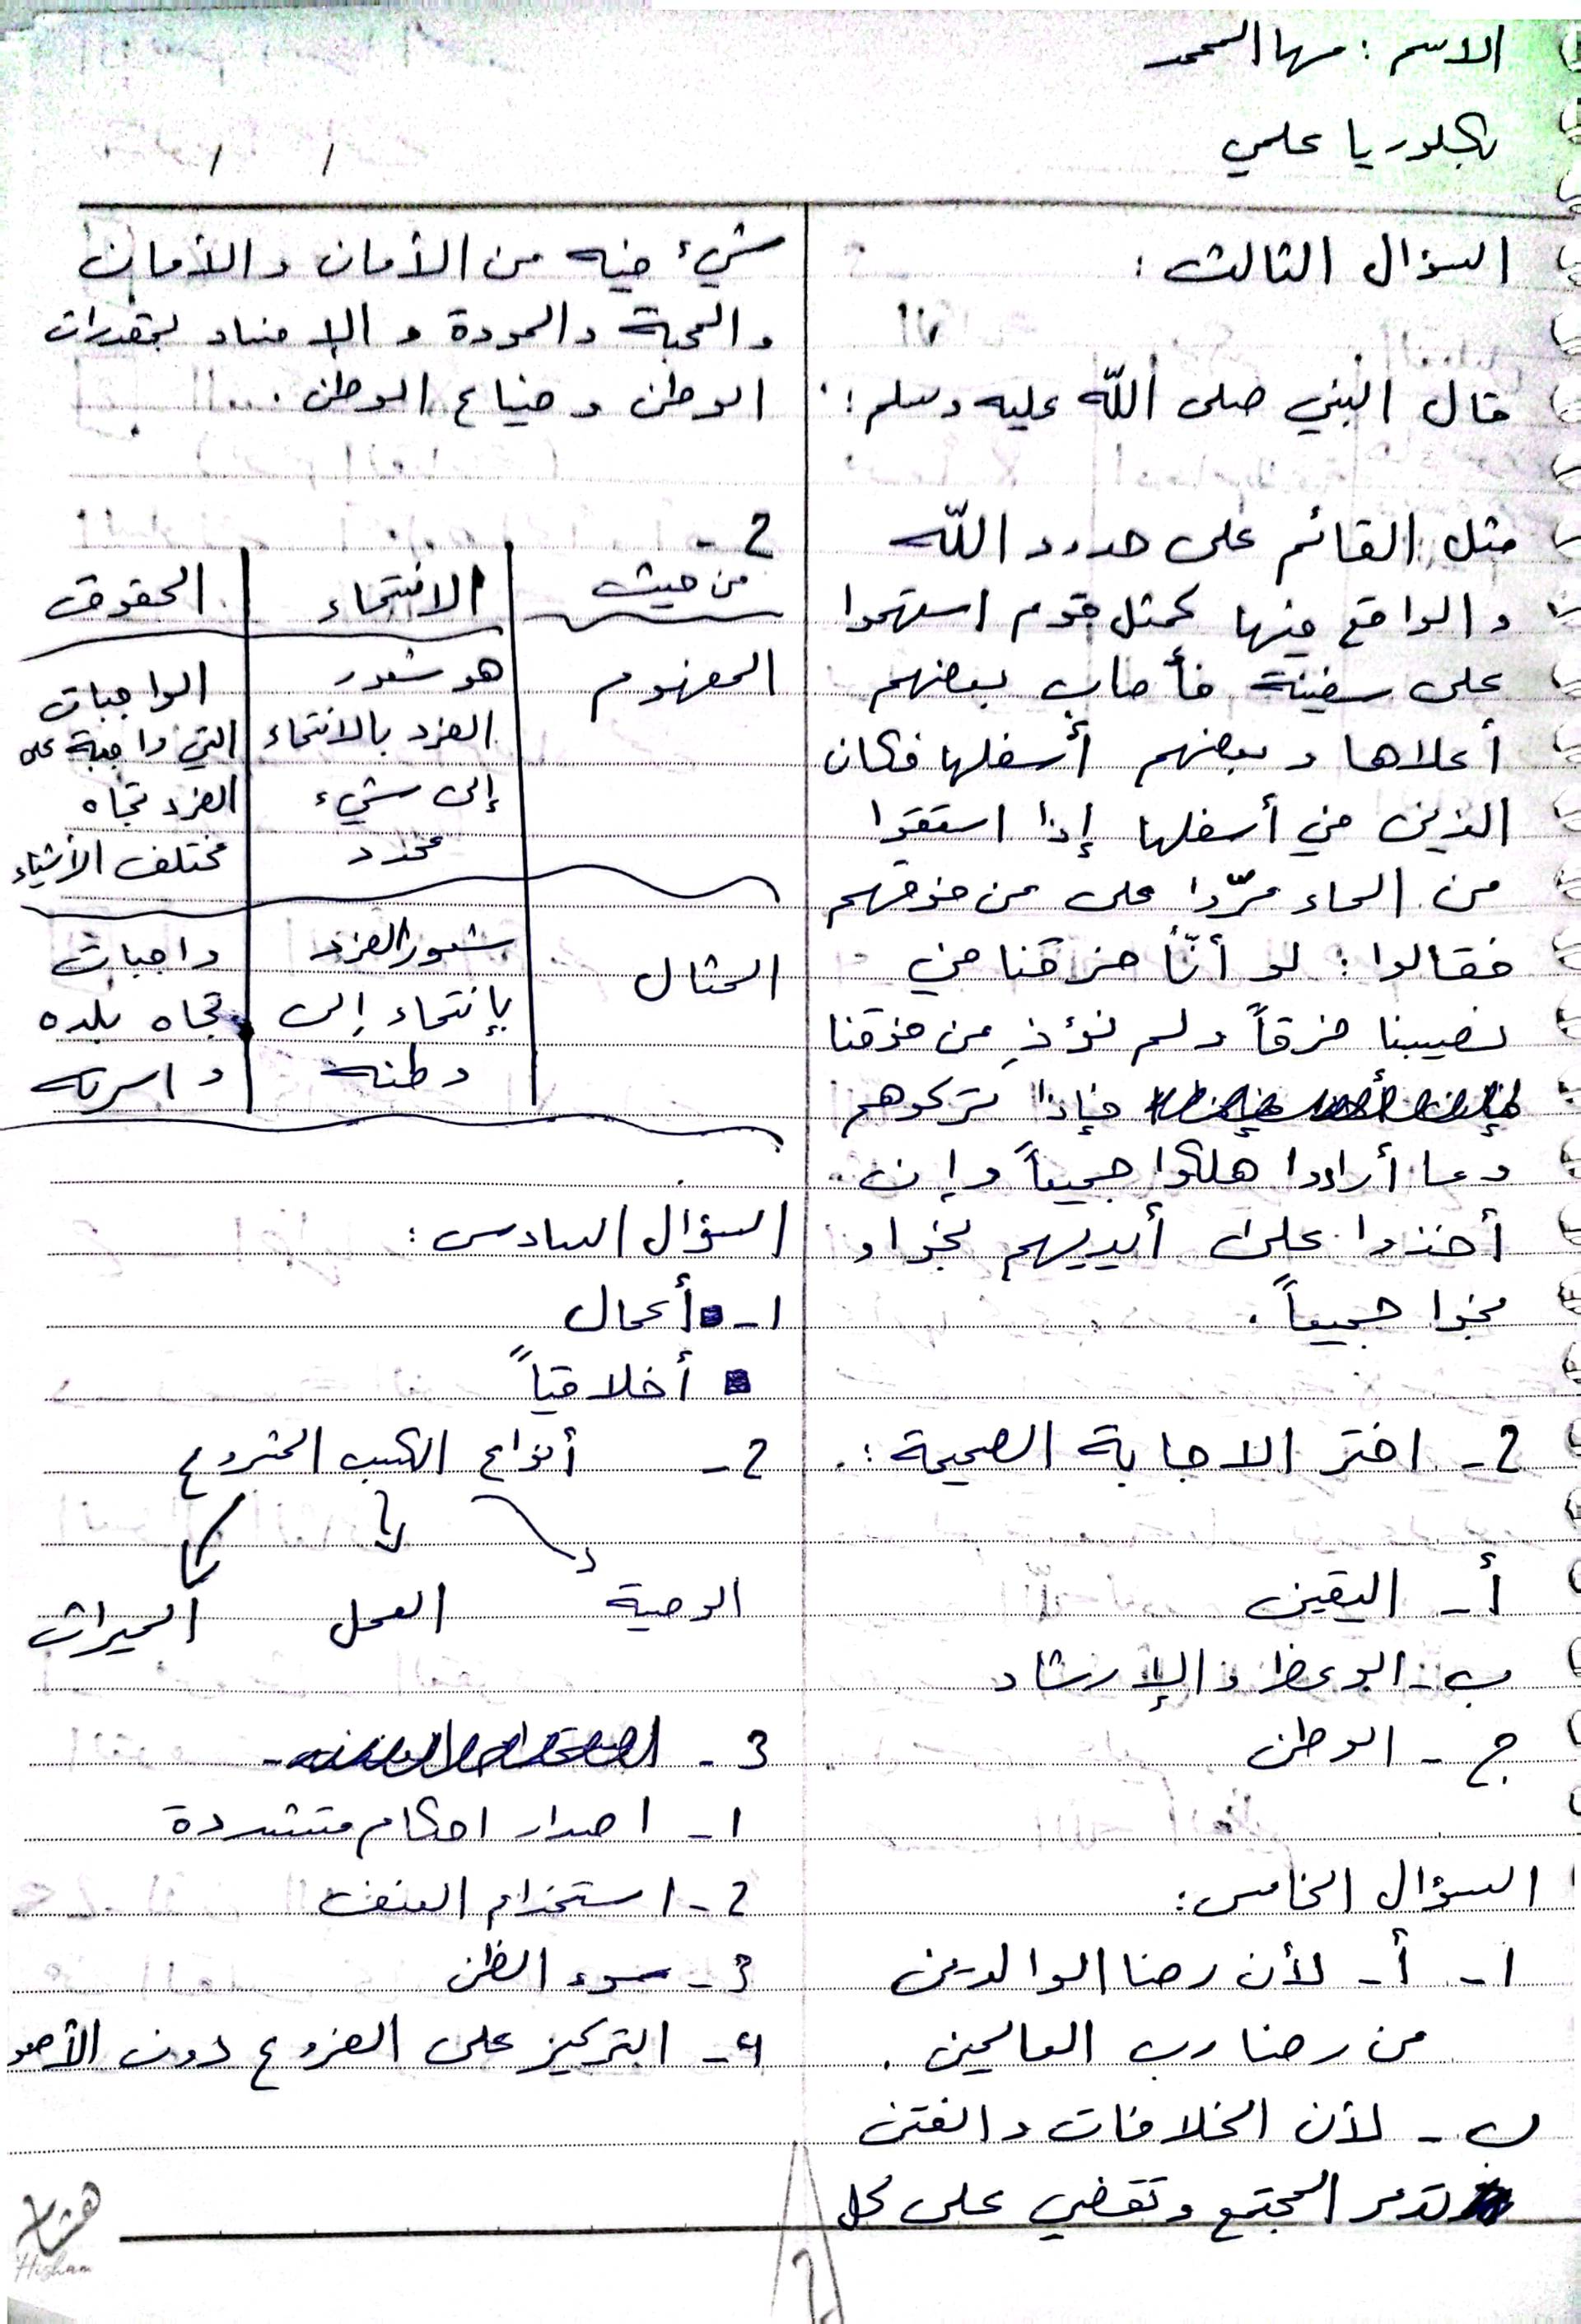 الاسم : مها المحمد
بكلوريا علمي
/ /
السؤال الثالث :
قال النبي صلى الله عليه وسلم :
مثل القائم على حدود الله
والواقع فيها كمثل قوم استهموا
على سفينة فأصاب بعضهم
أعلاها وبعضهم أسفلها فكان
الذين في أسفلها إذا استقوا
من الماء مرّوا على من فوقهم
فقالوا : لو أنّا خرقنا في
نصيبنا خرقاً ولم نؤذِ من فوقنا
فإذا تركوهم
وما أرادوا هلكوا جميعاً وإن
أخذوا على أيديهم نجوا و
نجوا جميعاً .
2- اختر الاجابة الصحيحة :
أ- اليقين
ب- الوعظ والإرشاد
ج- الوطن
السؤال الخامس :
1- أ- لأن رضا الوالدين
من رضا رب العالمين .
ب- لأن الخلافات والفتن
تدمر المجتمع وتقضي على كل
شيء فيه من الأمان والأمان
والمحبة والمودة و بمقدرات
الوطن وضياع الوطن .
2-
من حيث الانتماء الحقوق
المفهوم هو شعور الواجبات
الفرد بالانتماء التي واجبة على
إلى شيء الفرد تجاه
محدد مختلف الأشياء
المثال شعور الفرد واجبات
بإنتماء إلى تجاه بلده
وطنه واسرته
السؤال السادس :
1- أعمال
أخلاقياً
2- أنواع الكسب المشروع
الوصية العمل الميراث
3-
1- اصدار احكام متشددة
2- استخدام العنف
3- سوء الظن
4- التركيز على الفروع دون الأصو
هشام
Hisham
2